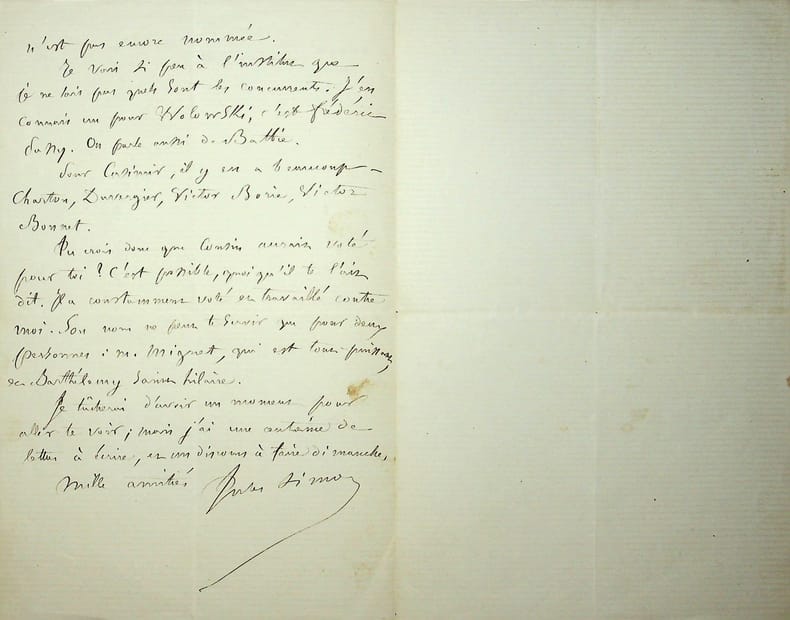 n'est pas encore nommée.
Je vois si peu à l'institut que
je ne sais pas quels sont les concurrents. J'en
connais un pour Wolowski, c'est frédéric
Passy. On parle aussi de Batbie.
Pour Casimir, il y en a beaucoup –
Charton, Duvergier, Victor Borie, Victor
Bonnet.
Tu crois donc que Cousin aurait voté
pour toi ? C'est possible, quoiqu'il te l'ait
dit. Il a constamment voté et travaillé contre
moi. Son nom ne peut te servir que pour deux
personnes : m. Mignet, qui est tout puissant,
et Barthélemy Saint hilaire.
Je tâcherai d'avoir un moment pour
aller te voir ; mais j'ai une de
lettres à écrire, et un discours à faire dimanche.
Mille amitiés Jules Simon